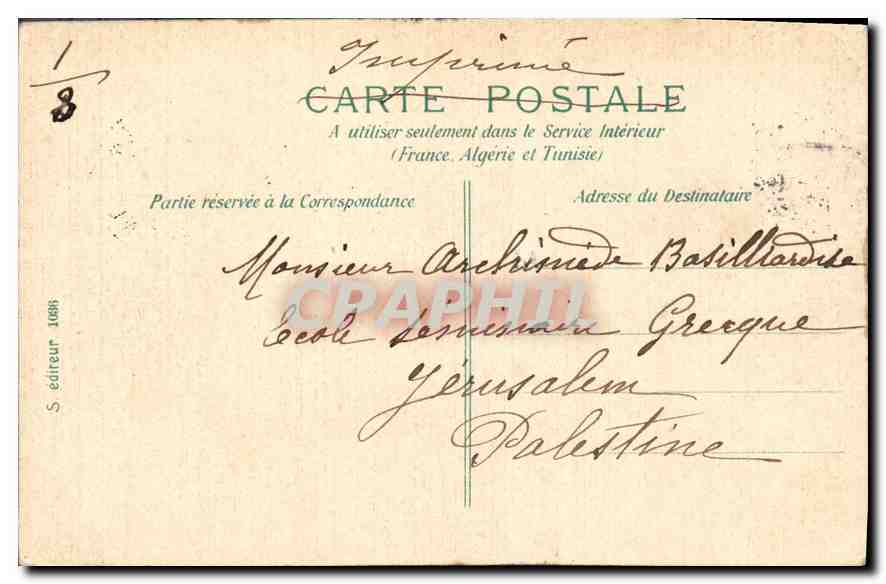 1/8
Imprimé
CARTE POSTALE
A utiliser seulement dans le Service Intérieur
(France, Algérie et Tunisie)
Partie réservée à la Correspondance
Adresse du Destinataire
Monsieur Archimède Basilliardise
CPAPHIL
école Séminaire Grecque
Jérusalem
Palestine
S. éditeur 1036